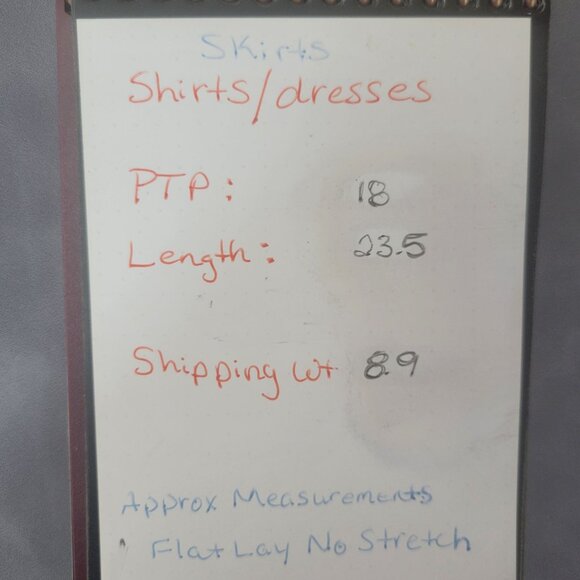 Skirts
Shirts/dresses
PTP: 18
Length: 23.5
Shipping wt 8.9
Approx Measurements
Flat Lay No Stretch